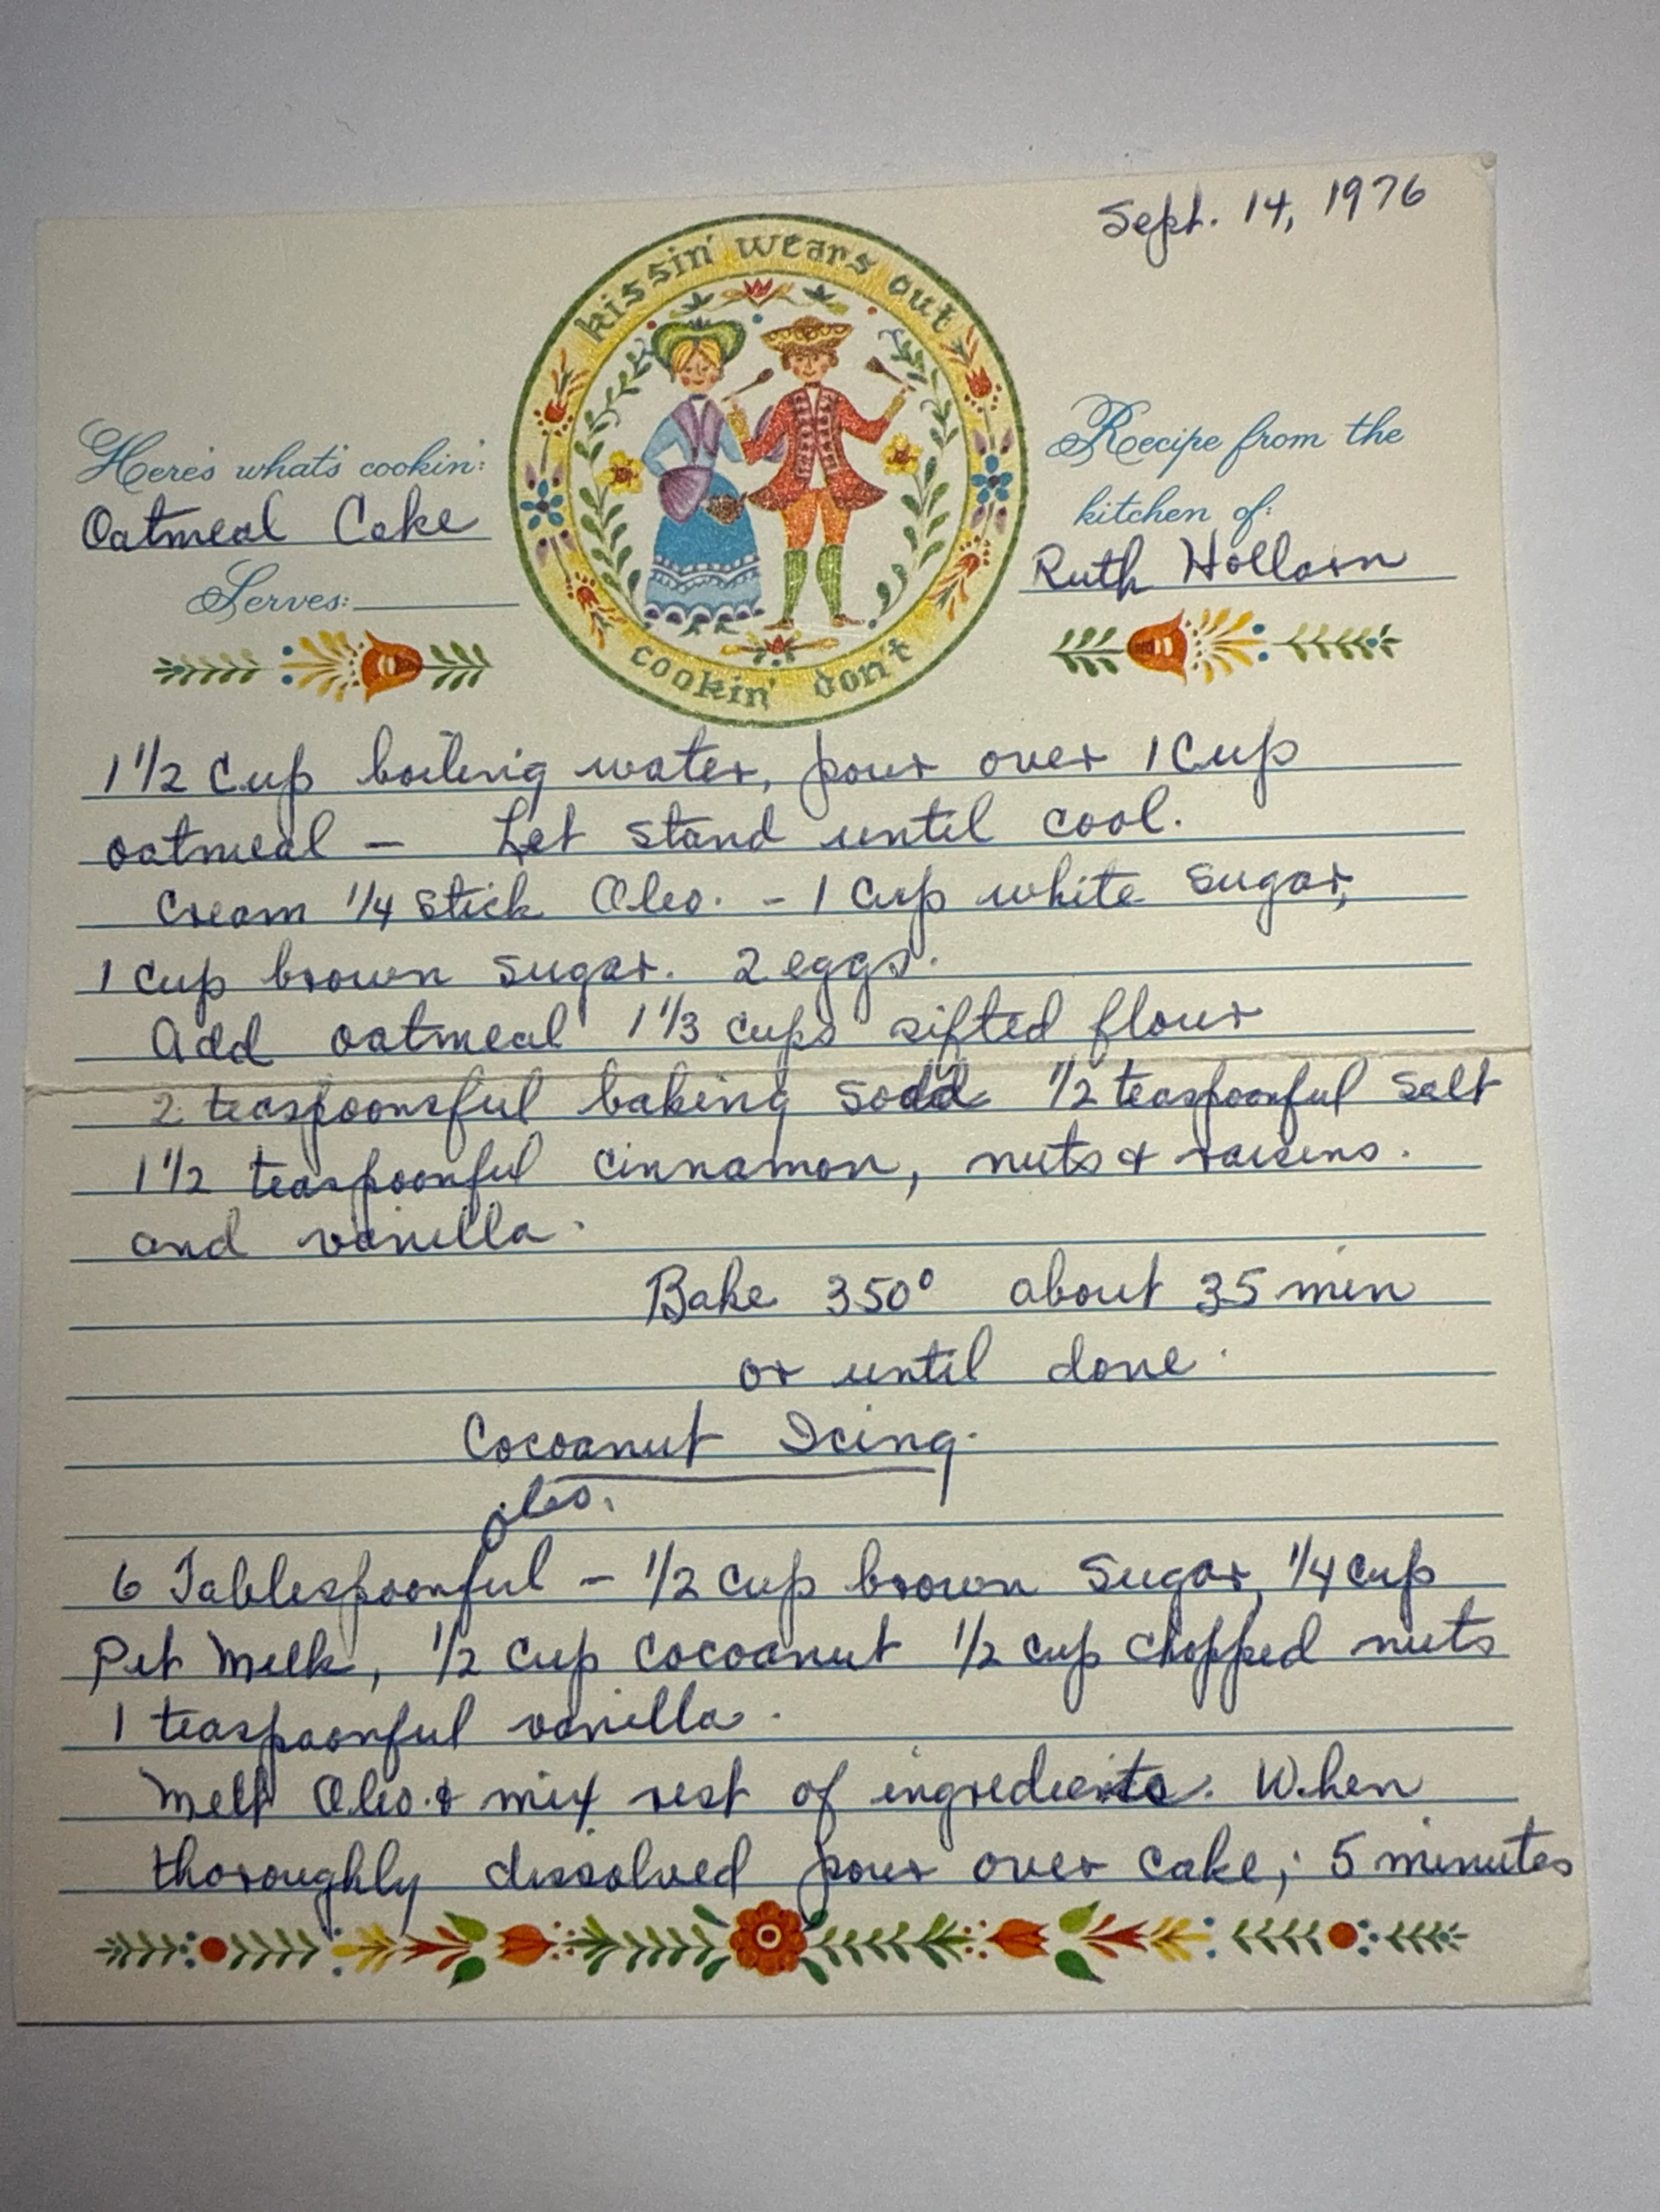 Sept. 14, 1976
kissin' wears out
cookin' don't
Here's what's cookin':
Oatmeal Cake
Serves:
Recipe from the
kitchen of:
Ruth Hollorn
1 1/2 Cup boiling water, pour over 1 Cup
oatmeal — Let stand until cool.
Cream 1/4 stick Oleo. - 1 Cup white sugar,
1 cup brown sugar. 2 eggs.
Add oatmeal 1 1/3 cups sifted flour
2 teaspoonsful baking soda 1/2 teaspoonful salt
1 1/2 teaspoonful cinnamon, nuts & raisins.
and vanilla.
Bake 350° about 35 min
or until done.
Cocoanut Icing.
oleo.
6 Tablespoonful - 1/2 cup brown sugar, 1/4 cup
Pet Milk, 1/2 cup cocoanut 1/2 cup chopped nuts
1 teaspoonful vanilla.
Melt Oleo. & mix rest of ingredients. When
thoroughly dissolved pour over cake; 5 minutes